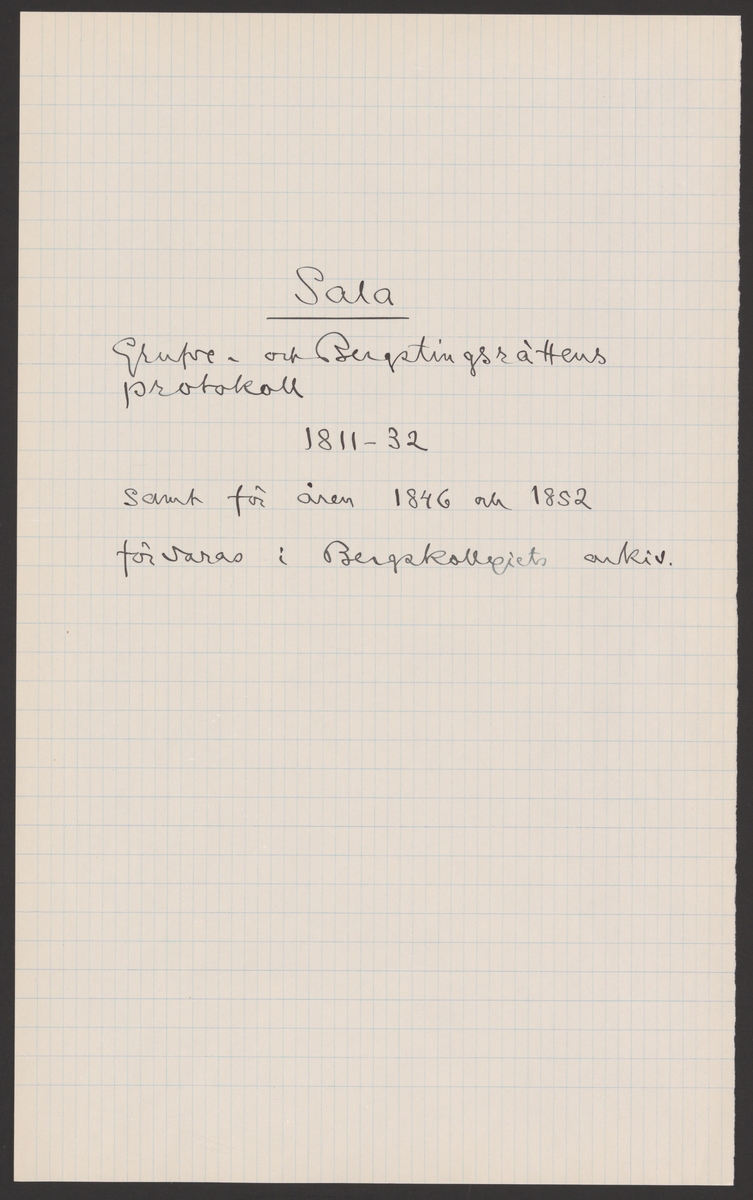 Sala
Grufve- och Bergstingsrättens
protokoll
1811-32
samt för åren 1846 och 1852
förvaras i Bergskollegiets arkiv.